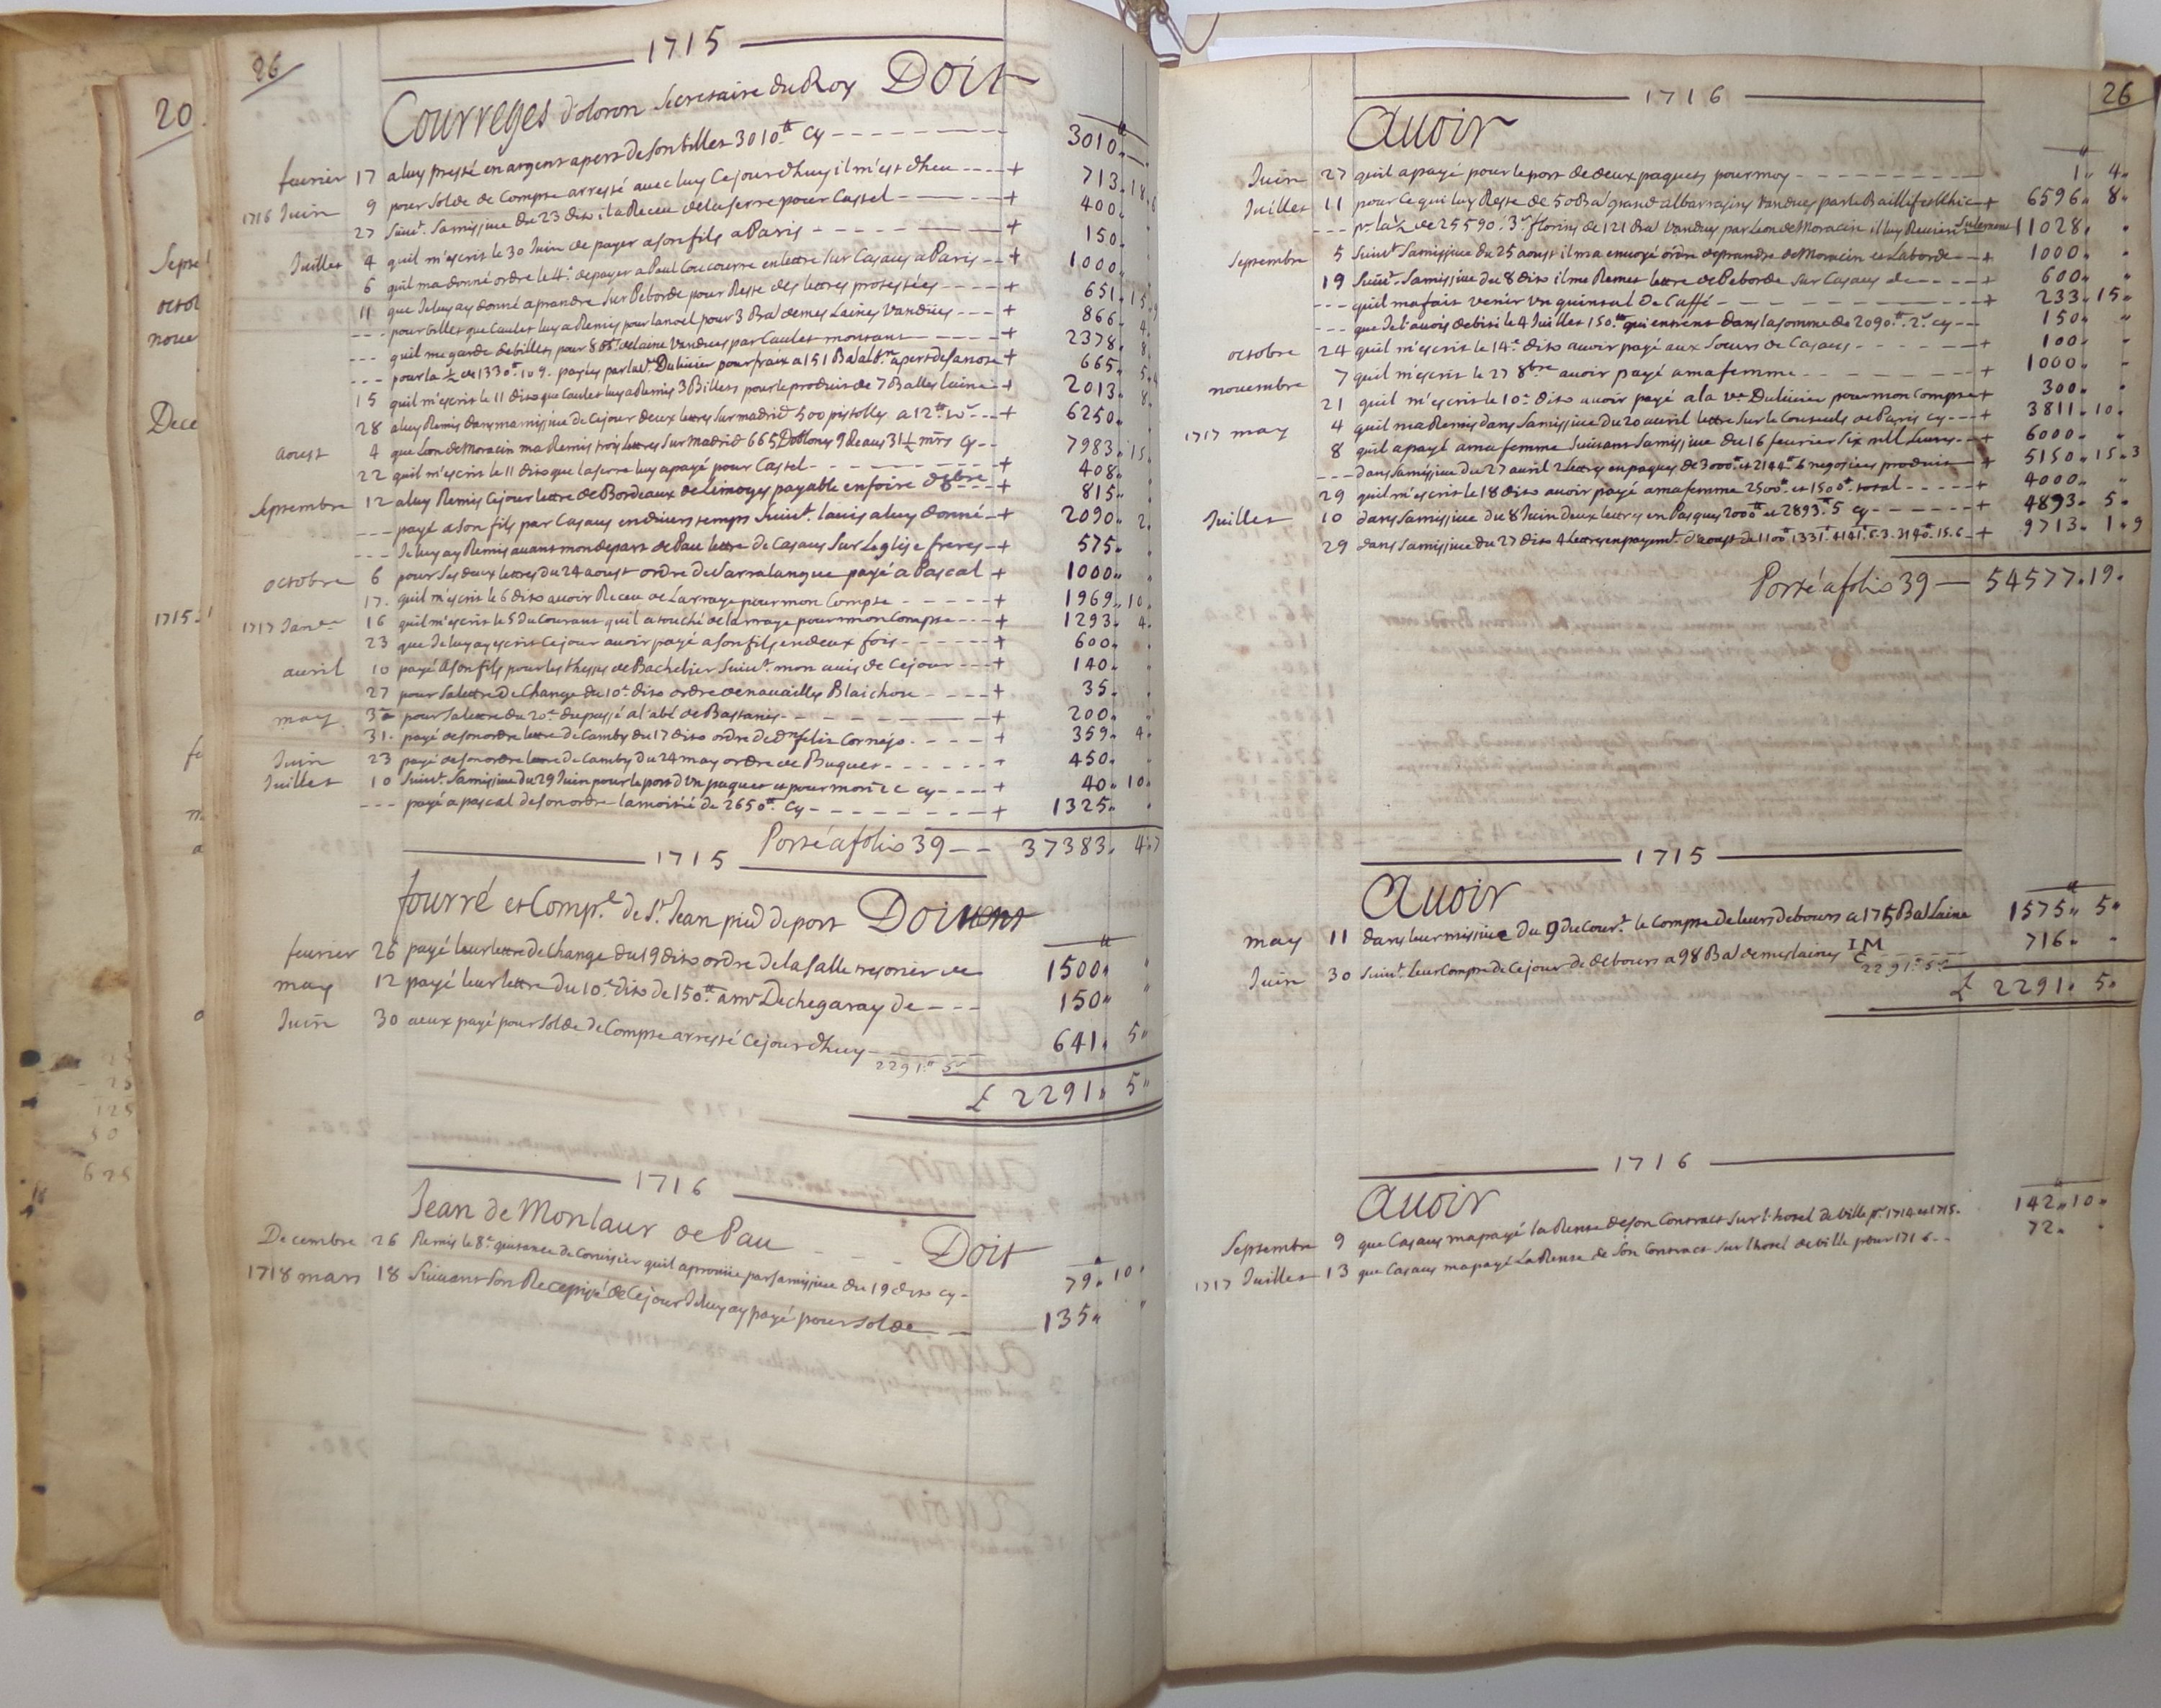 26
1715
Courreges d'oloron Secretaire du Roy Doit
feurier 17 a luy presté en argent apert de son billet 3010 tt cy 3010
1716 Juin 9 pour Solde de Compte arresté auec luy Cejourdhuy il m'est dheu + 713 18 6
27 Suiut. Samissiue du 23 dito il a Receu de laserre pour Castel + 400
Juillet 4 quil m'escrit le 30 Juin de payer a son fils a Paris + 150
6 quil ma donné ordre le 4e de payer a Paul Coucourre en lettre sur Casaus a Paris + 1000
11 que Je luy ay donné a prandre sur Peborde pour Reste des lettres protestées + 651 15 9
pour billet que Caulet luy a Remis pour lanoel pour 3 Bal de mes Laines Vandües + 866 4
quil me garde de billets pour 8 de laine Vandues par Caulet montant + 2378 8
pour la ½ de 1330 tt 10 9 payés par la Ve Duliuier pour fraix a 151 Bal apert de sa note + 665 5 4
15 quil m'escrit le 11 dito que Caulet luy a Remis 3 Billets pour le produit de 7 Balles laine + 2013 8
28 a luy Remis dans mamissiue de Cejour deux lettres sur madrid 500 pistolles a 12 tt 10 s + 6250
aoust 4 que Leon de Moracin ma Remis trois lettres sur Madrid 665 Doblons 9 Reaux 31½ mrs cy 7983 15
22 quil m'escrit le 11 dito que laserre luy a payé pour Castel + 408
Septembre 12 a luy Remis Cejour lettre de Bordeaux de Limoges payable en foire d'8bre + 815
payé a son fils par Casaus en diuers temps Suiut. lauis a luy donné + 2090 2
Je luy ay Remis auant mon depart de Pau lettre de Casaus sur Leglise freres + 575
octobre 6 pour Ses deux lettres du 24 aoust ordre de Darralangue payé a Pascal + 1000
17 quil m'escrit le 6 dito auoir Receu de Larraye pour mon Compte + 1969 10
1717 Janer 16 quil m'escrit le 5 du Courant quil a touché de larraye pour mon Compte + 1293 4
23 que Je luy ay escrit Cejour auoir payé a son fils en deux fois + 600
auril 10 payé a Son fils pour les theses de Bachelier Suiut. mon auis de Cejour + 140
27 pour Sa lettre de Change du 10e dito ordre de nauailles Blaichon + 35
may 3 pour Sa lettre du 20e du passé a l'abé de Bastanés + 200
31 payé de son ordre lettre de Camby du 17 dito ordre de Dn felix Cornejo + 359 4
Juin 23 payé de son ordre lettre de Camby du 24 may ordre de Buquet + 450
Juillet 10 Suiut. Samissiue du 29 Juin pour le port d'Un paquet et pour cy + 40 10
payé a pascal de Son ordre la moitié de 2650 tt cy + 1325
Porté a folio 39 37383 4 7
1715
fourré et Compe de St Jean pied de port Doiuent
feurier 26 payé leur lettre de Change du 19 dito ordre de lasalle tresorier de 1500
may 12 payé leur lettre du 10e dito de 150 tt a mr Dechegaray de 150
Juin 30 a eux payé pour Solde de Compte arresté Cejourdhuy 641 5
2291 tt 5 s
£ 2291 5
1716
Jean de Monlaur de Pau Doit
Decembre 26 Remis le 8e quittance de Couuisier quil aprouüe par samissiue du 19 dito cy 79 10
1718 mars 18 Suiuant Son Recepissé de Cejour Je luy ay payé pour solde 135
1716
26
Auoir
Juin 27 quil a payé pour le port de deux paquets pour moy 1 4
Juillet 11 pour Ce qui luy Reste de 50 Bal grand albarrasins Vandues par le Baillif et Chic + 6596 8
pr la ½ de 25590 3 florins de 121 Bal Vandus par Leon de Moracin il luy Reuien Sulement 11028
Septembre 5 Suiut Samissiue du 25 aoust il ma enuoyé ordre de prandre de Moracin et Laborde + 1000
19 Suiut. Samissiue du 8 dito il me Remet lettre de Peborde sur Casaus de + 600
quil ma fait venir vn quintal de Caffé + 233 15
que Je l'auois debité le 4 Juillet 150 tt qui entrent dans la somme de 2090 tt 2 s cy 150
octobre 24 quil m'escrit le 14e dito auoir payé aux Soeurs de Casaus + 100
nouembre 7 quil m'escrit le 27 8bre auoir payé a ma femme + 1000
21 quil m'escrit le 10e dito auoir payé a la Ve Duliuier pour mon Compte + 300
1717 may 4 quil ma Remis dans Samissiue du 20 auril lettre sur le Couteuls de Paris cy + 3811 10
8 quil a payé a ma femme Suiuant Samissiue du 16 feurier Six mil Liures + 6000
dans Samissiue du 27 auril 2 lettres en paques de 3000 tt et 2144 tt 6 negotiées produit + 5150 15 3
29 quil m'escrit le 18 dito auoir payé a ma femme 2500 tt et 1500 tt total + 4000
Juillet 10 dans Samissiue du 8 Juin deux lettres en Pasques 2000 tt et 2893 tt 5 cy + 4893 5
29 dans Samissiue du 27 dito 4 lettres en payemt. d'aoust de 1100 tt 1331 tt 4141 tt 6 3 3140 tt 15 6 + 9713 1 9
Porté a folio 39 54577 19
1715
Auoir
may 11 dans leur missiue du 9 du Cour.t le Compte de leurs debours a 175 Bal Laine 1575 5
Juin 30 Suiut. Leur Compte de Cejour de debours a 98 Bal de mes laines I M C 716
2291 tt 5 s
£ 2291 5
1716
Auoir
Septembre 9 que Casaus ma payé la Rente de son Contract Sur l'hotel de Ville pr 1714 et 1715 142 10
1717 Juillet 13 que Casaus ma payé La Rente de Son Contract Sur lhotel de ville pour 1716 72
20
Septe
octob
noue
Dece
1715
fe
125
50
625